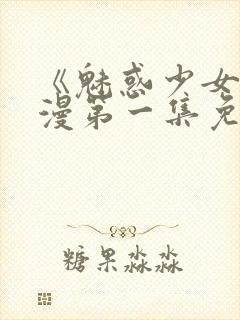 《魅惑少女
漫第一集免
糖果淼淼